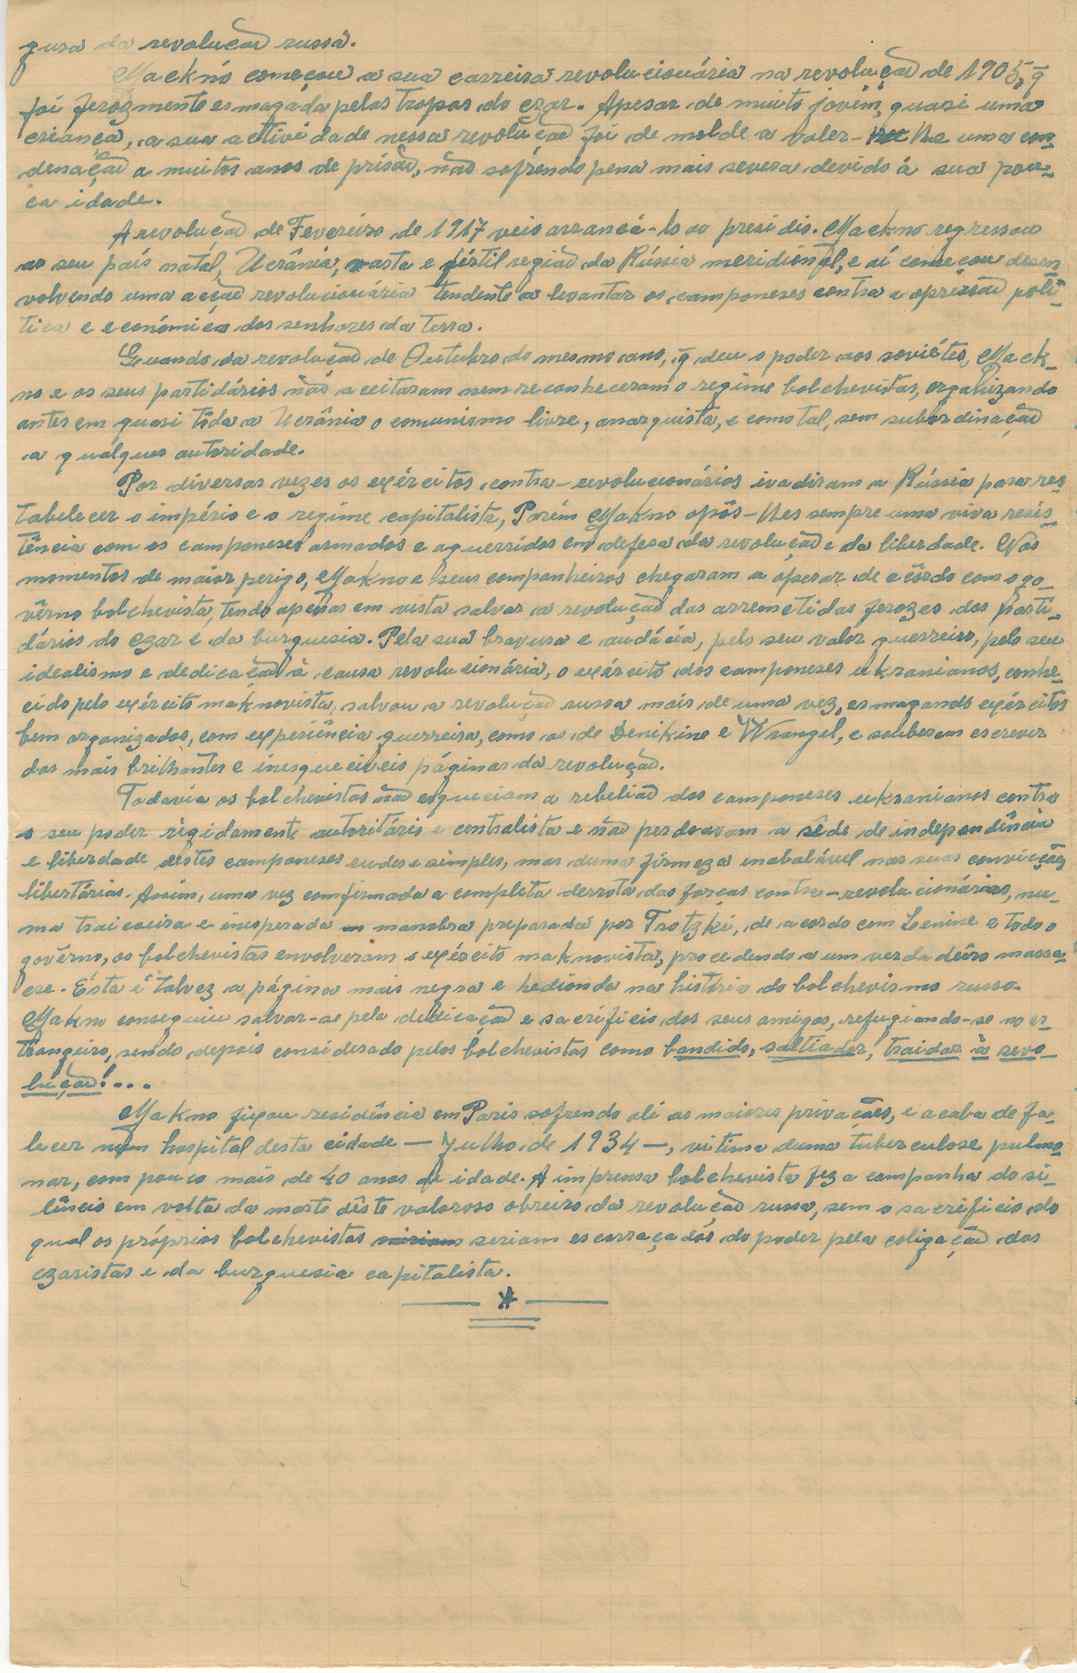 gura da revolução russa.
Mackno começou a sua carreira revolucionária na revolução de 1905, q̄
foi ferozmente esmagada pelas tropas do czar. Apesar de muito jovem, quasi uma
criança, a sua actividade nessa revolução foi de molde a valer-lhe uma con-
denação a muitos anos de prisão, não sofrendo pena mais severa devido á sua pou-
ca idade.
A revolução de Fevereiro de 1917 veio arrancá-lo ao presidio. Mackno regressou
ao seu país natal, Ucrânia, vasta e fértil região da Rússia meridional, e aí começou desen-
volvendo uma acção revolucionária tendente a levantar os camponeses contra a opressão polí-
tica e económica dos senhores da terra.
Quando da revolução de Outubro do mesmo ano, q̄ deu o poder aos soviétes, Mack-
no e os seus partidários não aceitaram nem reconheceram o regime bolchevista, organizando
antes em quasi tôda a Ucrânia o comunismo livre, anarquista, e como tal, sem subordinação
a qualquer autoridade.
Por diversas vezes os exércitos contra-revolucionários ivadiram a Rússia para res-
tabelecer o império e o regime capitalista, Porém Makno opôs-lhes sempre uma viva resis-
tência com os camponeses armados e aguerridos em defesa da revolução e da liberdade. Nos
momentos de maior perigo, Makno e seus companheiros chegaram a operar de acôrdo com o go-
vêrno bolchevista, tendo apenas em vista salvar a revolução das arremetidas ferozes dos parti-
dários do czar e da burguesia. Pela sua bravura e audácia, pelo seu valor guerreiro, pelo seu
idealismo e dedicação à causa revolucionária, o exército dos camponeses ukranianos, conhe-
cido pelo exército maknovista, salvou a revolução russa mais de uma vez, esmagando exércitos
bem organizados, com experiência guerreira, como os de Denikine e Wrangel, e souberam escrever
das mais brilhantes e inesqueciveis páginas da revolução.
Todavia os bolchevistas não esqueciam a rebelião dos camponeses ukranianos contra
o seu poder rigidamente autoritário e centralista e não perdoavam a sêde de independência
e liberdade dêstes camponeses rudes e simples, mas duma firmeza inabalável nas suas convicções
libertárias. Assim, uma vez comfirmada a completa derrota das forças contra-revolucionárias, nu-
ma traiçoeira e inesperada manobra preparada por Trotzki, de acordo com Lenine e todo o
govêrno, os bolchevistas envolveram o exército maknovista, procedendo a um verdadeiro massa-
cre. Esta é talvez a página mais negra e hedionda na história do bolchevismo russo.
Makno conseguiu salvar-se pela dedicação e sacrificio dos seus amigos, refugiando-se no es-
trangeiro, sendo depois considerado pelos bolchevistas como bandido, salteador, traidor à revo-
lução!...
Makno fixou residência em Paris sofrendo ali as maiores privações, e acaba de fa-
lecer num hospital desta cidade — Julho de 1934 —, vitima duma tuberculose pulmo-
nar, com pouco mais de 40 anos de idade. A imprensa bolchevista fez a campanha do si-
lêncio em volta da morte dêste valoroso obreiro da revolução russa, sem o sacrificio do
qual os próprios bolchevistas seriam escorraçados do poder pela coligação dos
czaristas e da burguesia capitalista.